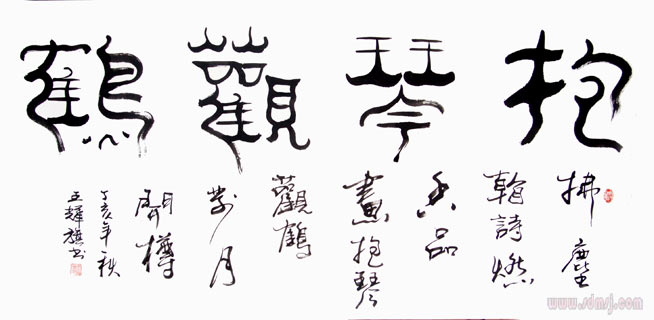 抱琴觀鶴
拂塵
翰詩燃
香品
畫抱琴
觀鶴
對月
開樽
丁亥年秋
www.sdmsj.com